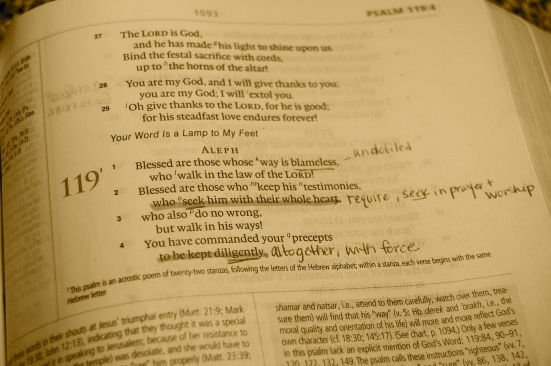 1093
PSALM 119:4
27 The LORD is God,
and he has made his light to shine upon us.
Bind the festal sacrifice with cords,
up to the horns of the altar!
28 You are my God, and I will give thanks to you;
you are my God; I will extol you.
29 Oh give thanks to the LORD, for he is good;
for his steadfast love endures forever!
Your Word Is a Lamp to My Feet
ALEPH
119 1 Blessed are those whose way is blameless, - undefiled
who walk in the law of the LORD!
2 Blessed are those who keep his testimonies,
who seek him with their whole heart, require, seek in prayer + worship
3 who also do no wrong,
but walk in his ways!
4 You have commanded your precepts
to be kept diligently. altogether, with force
This psalm is an acrostic poem of twenty-two stanzas, following the letters of the Hebrew alphabet; within a stanza, each verse begins with the same
Hebrew letter
words in their shouts at Jesus' triumphal entry (Matt. 21:9; Mark
19:38; John 12:13), indicating that they thought it was a special
it in speaking to Jerusalem; because of her resistance to
temple) was desolate, and she would have to
him properly (Matt. 23:39;
shamar and natsar, i.e., attend to them carefully, watch over them, trea-
sure them) will find that his "way" (v. 5; Hb. derek and 'orakh, i.e., the
moral quality and orientation of his life) will more and more reflect God's
own character (cf. 18:30; 145:17). (See chart, p. 1094.) Only a few verses
in this psalm lack an explicit mention of God's Word: 119:84, 90–91,
120, 122, 132, 149. The psalm calls these instructions "righteous" (vv. 7,
86, 138, 142,